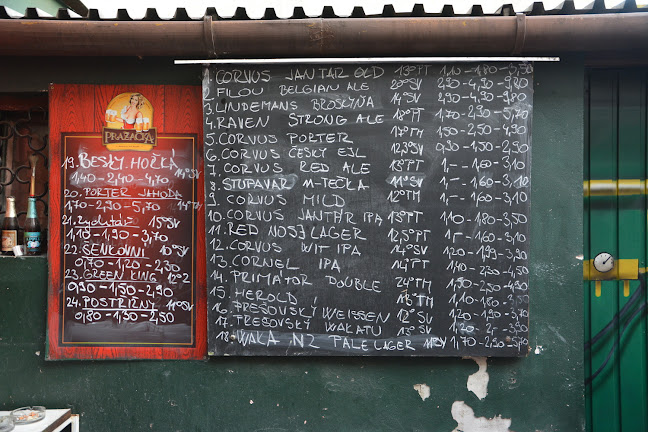 PRAZAČKA
19. BESKY HOŘKÁ 14°SV
1,40 - 2,40 - 4,70
20. PORTER JAHODA
1,70 - 2,90 - 5,70 14°SV
21. 15°SV
1,10 - 1,90 - 3,70
22. ŠENKOVNÍ 10°SV
0,70 - 1,20 - 2,30
23. GREEN KING 12°
0,90 - 1,50 - 2,90
24. POSTRIŽINY 11°SV
0,80 - 1,30 - 2,50
1. CORVUS JANTAR OLD 13°PT 1,10 - 1,80 - 3,50
2. FILOU BELGIAN ALE 20°SV 2,90 - 4,90 - 9,80
3. LINDEMANS 14°SV 2,90 - 4,90 - 9,80
4. RAVEN STRONG ALE 18°PT 1,70 - 2,90 - 5,70
5. CORVUS PORTER 17°TM 1,50 - 2,50 - 4,90
6. CORVUS ČESKÝ EJL 12,5°SV 0,90 - 1,50 - 2,90
7. CORVUS RED ALE 13°PT 1,- - 1,60 - 3,10
8. STUPAVAR M-TEČKA 11°SV 1,- - 1,60 - 3,10
9. CORVUS MILD 12°TM 1,- - 1,60 - 3,10
10. CORVUS JANTAR IPA 13°PT 1,10 - 1,80 - 3,50
11. RED NOSE LAGER 12,5°PT 1,- - 1,60 - 3,10
12. CORVUS WIT IPA 14°SV
13. CORNEL IPA 14°PT
14. PRIMATOR DOUBLE 24°TM
15. HEROLD 13°TM
16. PREŠOVSKÝ WEISSEN 12°SV
17. PREŠOVSKÝ WAKATU 13°SV
18. WAKA NZ PALE LAGER 1,70 - 2,90 - 5,70